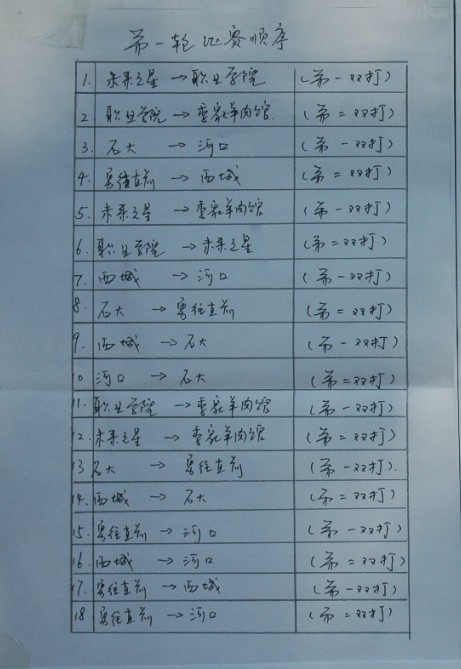 第一轮比赛顺序
1. 未来之星 → 职业学院 (第一双打)
2. 职业学院 → 李家羊肉馆. (第二双打)
3. 石大 → 河口 (第一双打)
4. 勇往直前 → 西城 (第二双打)
5. 未来之星 → 李家羊肉馆 (第一双打)
6. 职业学院 → 未来之星 (第二双打)
7. 西城 → 河口 (第一双打)
8. 石大 → 勇往直前 (第二双打)
9. 西城 → 石大 (第一双打)
10 河口 → 石大 (第二双打)
11. 职业学院 → 李家羊肉馆 (第一双打)
12. 未来之星 → 李家羊肉馆 (第二双打)
13 石大 → 勇往直前 (第一双打).
14. 西城 → 石大 (第二双打)
15. 勇往直前 → 河口 (第一双打)
16 西城 → 河口 (第二双打)
17. 勇往直前 → 西城 (第一双打)
18 勇往直前 → 河口 (第二双打)